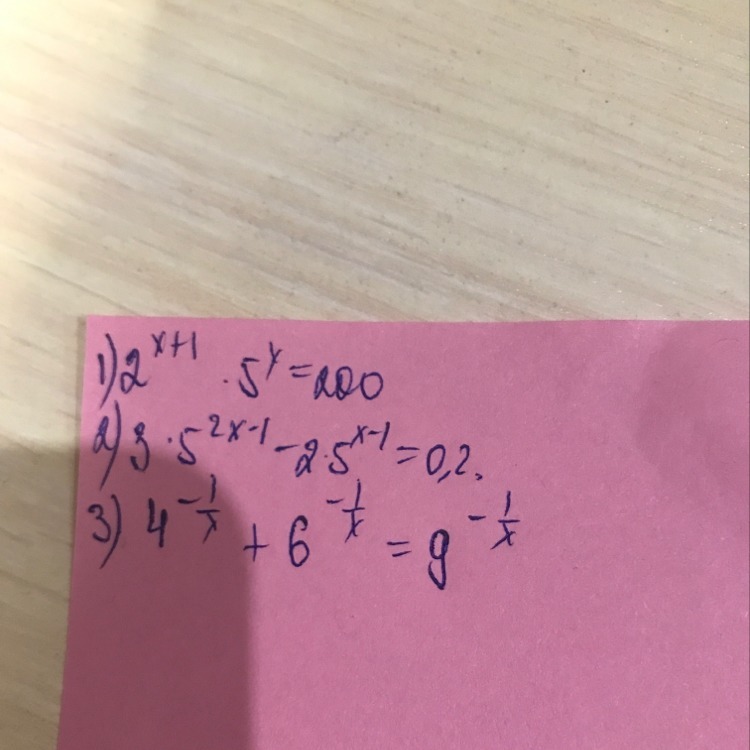 1) 2^(x+1) · 5^x = 200
2) 3 · 5^(2x-1) - 2 · 5^(x-1) = 0,2.
3) 4^(-1/x) + 6^(-1/x) = 9^(-1/x)